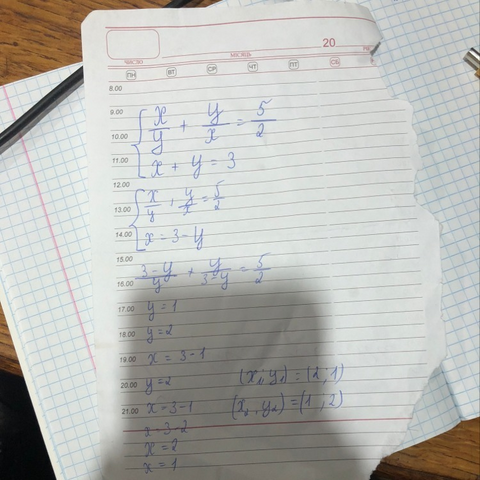 20
ЧИСЛО МЕСЯЦ
ПН ВТ СР ЧТ ПТ СБ
8.00
9.00
x/y + y/x = 5/2
10.00
11.00 x + y = 3
12.00
13.00 x/y + y/x = 5/2
14.00 x = 3 - y
15.00
16.00 3-y/y + y/3-y = 5/2
17.00 y = 1
18.00 y = 2
19.00 x = 3 - 1
20.00 y = 2 (x₁; y₁) = (2, 1)
21.00 x = 3 - 1 (x₂, y₂) = (1, 2)
x = 3 - 2
x = 2
x = 1